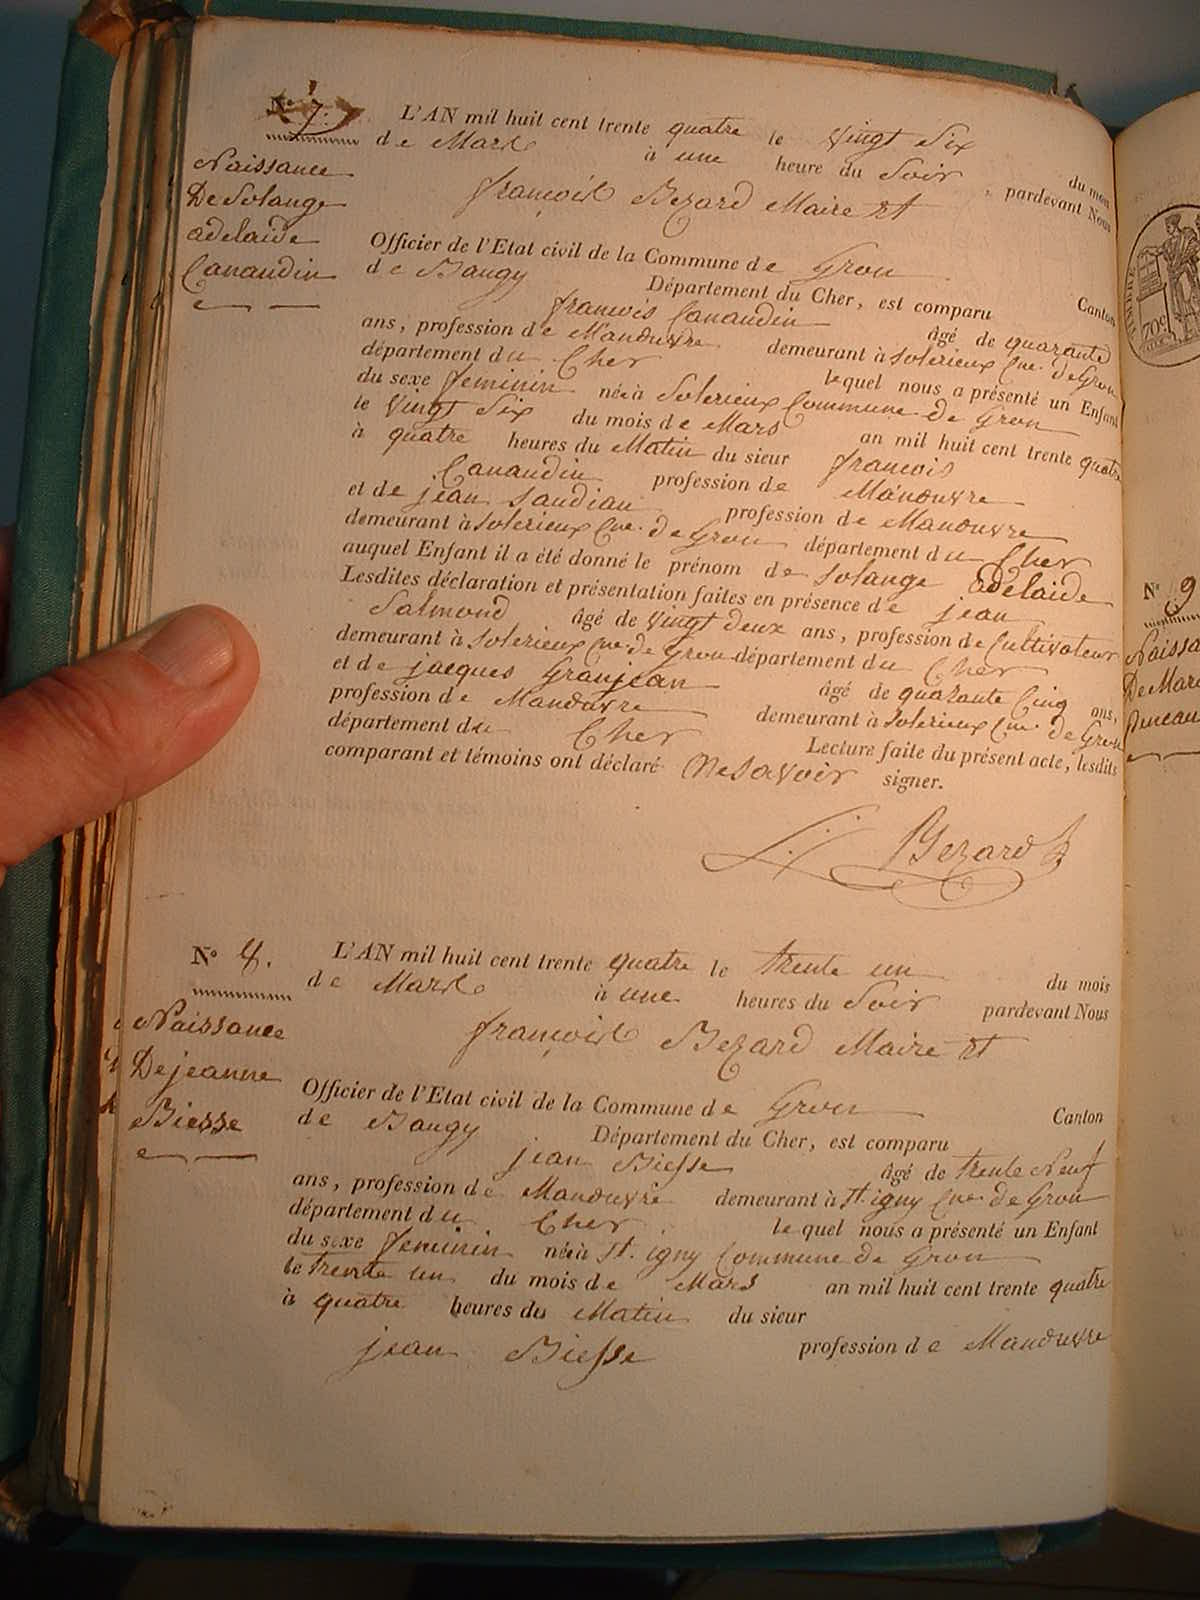 N° 7.
Naissance
De Solange
adelaide
Canaudin
L'AN mil huit cent trente quatre le Vingt Six du mois
de Mars à une heure du Soir pardevant Nous
françois Bezard Maire et
Officier de l'Etat civil de la Commune de Gron Canton
de Baugy Département du Cher, est comparu
francois Canaudin âgé de quarante
ans, profession de Manouvre demeurant à Solerieux Cne. de Gron
département du Cher lequel nous a présenté un Enfant
du sexe feminin née à Solerieux Commune de Gron
le Vingt Six du mois de Mars an mil huit cent trente quatre
à quatre heures du Matin du sieur francois
Canaudin profession de Manouvre
et de jean Saudian profession de Manouvre
demeurant à Solerieux Cne. de Gron département du Cher
auquel Enfant il a été donné le prénom de Solange adelaide
Lesdites déclaration et présentation faites en présence de jean
Salmond âgé de Vingt deux ans, profession de Cultivateur
demeurant à Solerieux Cne de Gron département du Cher
et de jacques Granjean âgé de quarante Cinq ans,
profession de Manouvre demeurant à Solerieux Cne. de Gron
département du Cher Lecture faite du présent acte, lesdits
comparant et témoins ont déclaré Ne Savoir signer.
Bezard
N° 8.
Naissance
De jeanne
Biesse
L'AN mil huit cent trente quatre le trente un du mois
de Mars à une heures du Soir pardevant Nous
françois Bezard Maire et
Officier de l'Etat civil de la Commune de Gron Canton
de Baugy Département du Cher, est comparu
jean Biesse âgé de trente Neuf
ans, profession de Manouvre demeurant à St. igny Cne de Gron
département du Cher lequel nous a présenté un Enfant
du sexe feminin née à St. igny Commune de Gron
le trente un du mois de Mars an mil huit cent trente quatre
à quatre heures du Matin du sieur
jean Biesse profession de Manouvre
TIMBRE
70c
N° 9
Naissa
De Mari